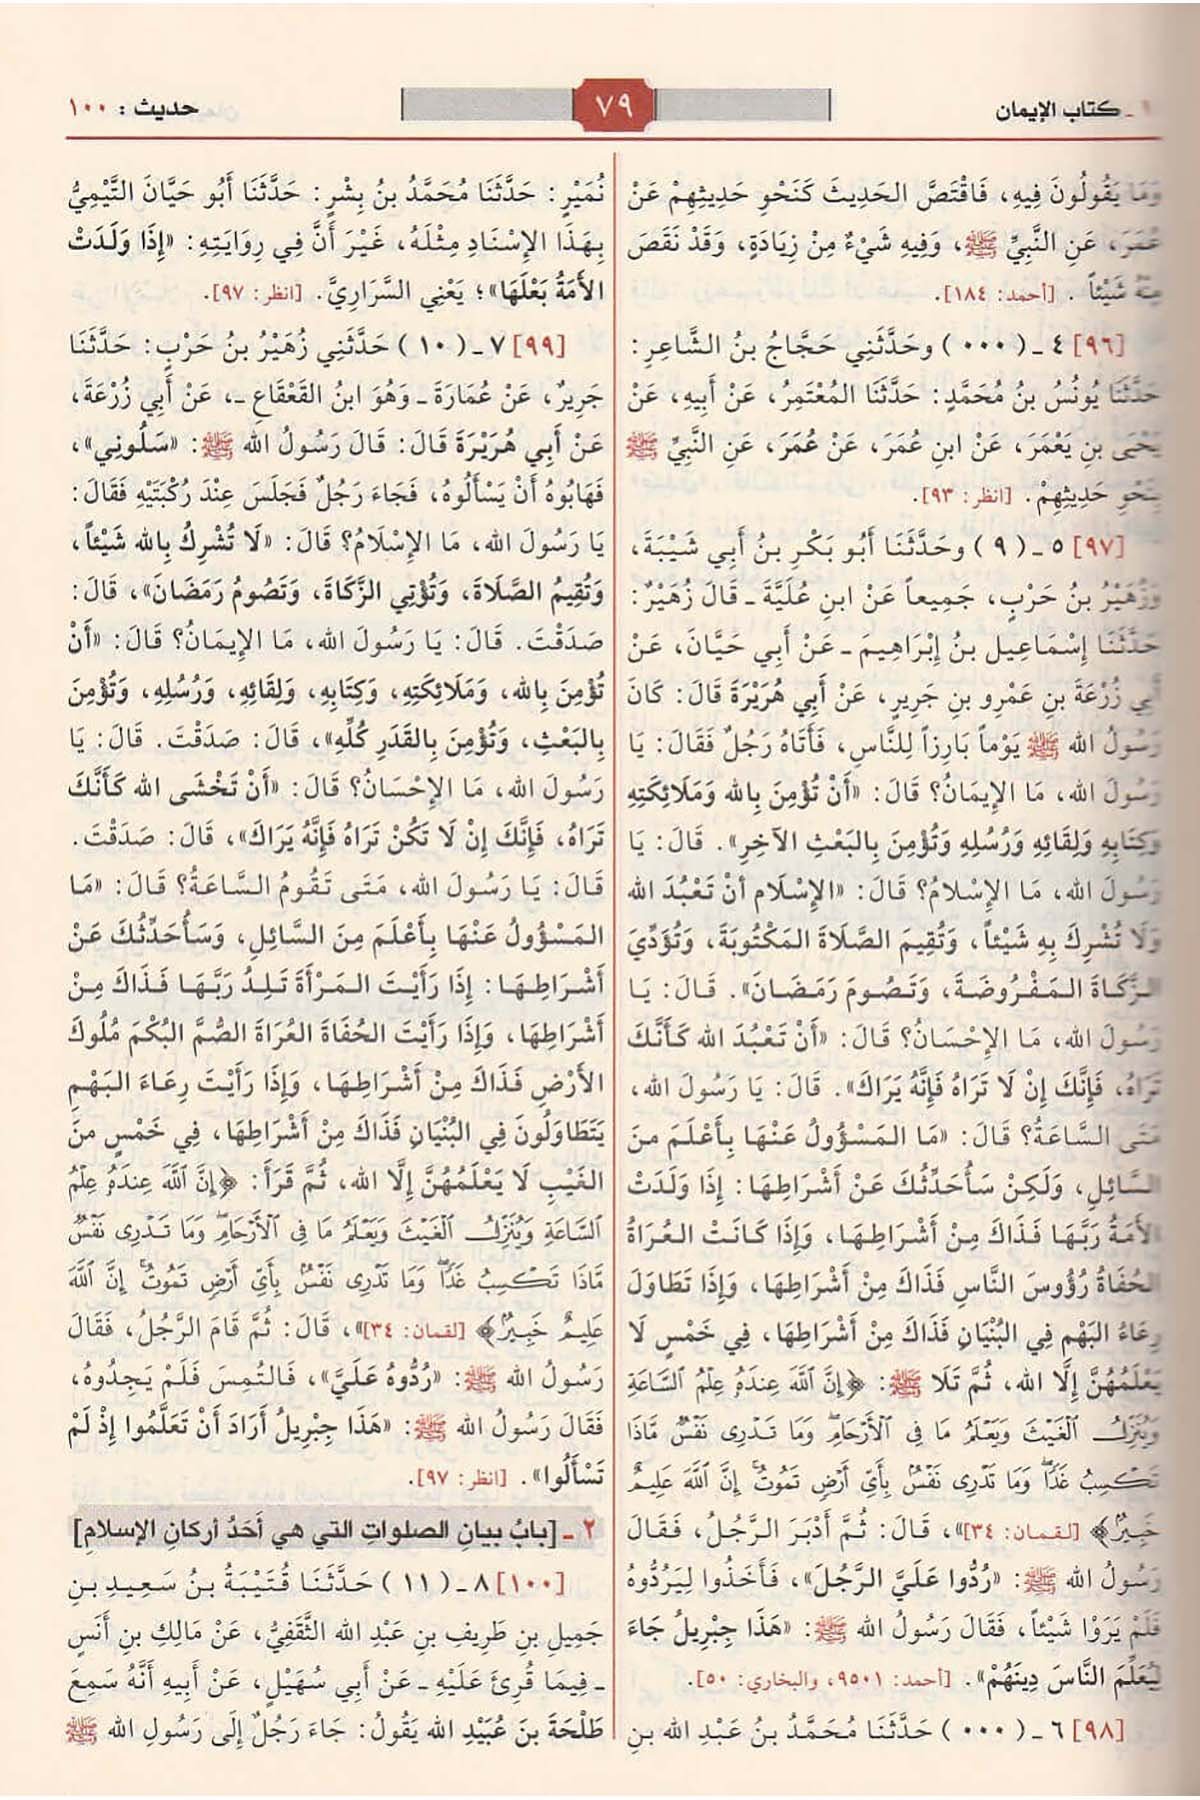 ١ - كتاب الإيمان
٧٩
حديث : ١٠٠
وَمَا يَقُولُونَ فِيهِ، فَاقْتَصَّ الحَدِيثَ كَنَحْوِ حَدِيثِهِمْ عَنْ
عُمَرَ، عَنِ النَّبِيِّ ﷺ، وَفِيهِ شَيْءٌ مِنْ زِيَادَةٍ، وَقَدْ نَقَصَ
مِنْهُ شَيْئاً . [أحمد: ١٨٤].
[٩٦] ٤ - ( ٠٠٠ ) وحَدَّثَنِي حَجَّاجُ بنُ الشَّاعِرِ:
حَدَّثَنَا يُونُسُ بنُ مُحَمَّدٍ: حَدَّثَنَا المُعْتَمِرُ، عَنْ أَبِيهِ، عَنْ
يَحْيَى بنِ يَعْمَرَ، عَنْ ابنِ عُمَرَ، عَنْ عُمَرَ، عَنِ النَّبِيِّ ﷺ
بِنَحْوِ حَدِيثِهِمْ. [انظر: ٩٣].
[٩٧] ٥ - ( ٩ ) وحَدَّثَنَا أَبُو بَكْرِ بنُ أَبِي شَيْبَةَ،
وَزُهَيْرُ بنُ حَرْبٍ، جَمِيعاً عَنْ ابنِ عُلَيَّةَ - قَالَ زُهَيْرٌ:
حَدَّثَنَا إِسْمَاعِيل بنُ إِبْرَاهِيمَ - عَنْ أَبِي حَيَّانَ، عَنْ
أَبِي زُرْعَةَ بنِ عَمْرِو بنِ جَرِيرٍ، عَنْ أَبِي هُرَيْرَةَ قَالَ: كَانَ
رَسُولُ الله ﷺ يَوْماً بَارِزاً لِلنَّاسِ، فَأَتَاهُ رَجُلٌ فَقَالَ: يَا
رَسُولَ الله، مَا الإِيمَانُ؟ قَالَ: «أَنْ تُؤْمِنَ بِالله وَمَلَائِكَتِهِ
وَكِتَابِهِ وَلِقَائِهِ وَرُسُلِهِ وَتُؤْمِنَ بِالبَعْثِ الآخِرِ». قَالَ: يَا
رَسُولَ الله، مَا الإِسْلَامُ؟ قَالَ: «الإِسْلَام أنْ تَعْبُدَ الله
وَلَا تُشْرِكَ بِهِ شَيْئاً، وَتُقِيمَ الصَّلَاةَ المَكْتُوبَةَ، وَتُؤَدِّيَ
الزَّكَاةَ المَفْرُوضَةَ، وَتَصُومَ رَمَضَانَ». قَالَ: يَا
رَسُولَ الله، مَا الإِحْسَانُ؟ قَالَ: «أَنْ تَعْبُدَ الله كَأَنَّكَ
تَرَاهُ، فَإِنَّكَ إِنْ لَا تَرَاهُ فَإِنَّهُ يَرَاكَ». قَالَ: يَا رَسُولَ الله،
مَتَى السَّاعَةُ؟ قَالَ: «مَا المَسْؤُولُ عَنْهَا بِأَعْلَمَ مِنَ
السَّائِلِ، وَلَكِنْ سَأُحَدِّثُكَ عَنْ أَشْرَاطِهَا: إِذَا وَلَدَتْ
الأَمَةُ رَبَّهَا فَذَاكَ مِنْ أَشْرَاطِهَا، وَإِذَا كَانَتْ العُرَاةُ
الحُفَاةُ رُؤُوسَ النَّاسِ فَذَاكَ مِنْ أَشْرَاطِهَا، وَإِذَا تَطَاوَلَ
رِعَاءُ البَهْمِ فِي البُنْيَانِ فَذَاكَ مِنْ أَشْرَاطِهَا، فِي خَمْسٍ لَا
يَعْلَمُهُنَّ إِلَّا الله، ثُمَّ تَلَا ﷺ: ﴿إِنَّ ٱللَّهَ عِندَهُۥ عِلْمُ ٱلسَّاعَةِ
وَيُنَزِّلُ ٱلْغَيْثَ وَيَعْلَمُ مَا فِى ٱلْأَرْحَامِۖ وَمَا تَدْرِى نَفْسٌ مَّاذَا
تَكْسِبُ غَدًاۖ وَمَا تَدْرِى نَفْسٌۢ بِأَىِّ أَرْضٍ تَمُوتُۚ إِنَّ ٱللَّهَ عَلِيمٌ
خَبِيرٌۢ﴾ [لقمان: ٣٤]»، قَالَ: ثُمَّ أَدْبَرَ الرَّجُلُ، فَقَالَ
رَسُولُ الله ﷺ: «رُدُّوا عَلَيَّ الرَّجُلَ»، فَأَخَذُوا لِيَرُدُّوهُ
فَلَمْ يَرَوْا شَيْئاً، فَقَالَ رَسُولُ الله ﷺ: «هَذَا جِبْرِيلُ جَاءَ
لِيُعَلِّمَ النَّاسَ دِينَهُمْ». [أحمد: ٩٥٠١، والبخاري: ٥٠].
[٩٨] ٦ - ( ٠٠٠ ) حَدَّثَنَا مُحَمَّدُ بنُ عَبْدِ الله بنِ
نُمَيْرٍ: حَدَّثَنَا مُحَمَّدُ بنُ بِشْرٍ: حَدَّثَنَا أَبُو حَيَّانَ التَّيْمِيُّ
بِهَذَا الإِسْنَادِ مِثْلَهُ، غَيْرَ أَنَّ فِي رِوَايَتِهِ: «إِذَا وَلَدَتْ
الأَمَةُ بَعْلَهَا»؛ يَعْنِي السَّرَارِيَّ. [انظر: ٩٧].
[٩٩] ٧ - ( ١٠ ) حَدَّثَنِي زُهَيْرُ بنُ حَرْبٍ: حَدَّثَنَا
جَرِيرٌ، عَنْ عُمَارَةَ - وَهُوَ ابنُ القَعْقَاعِ -، عَنْ أَبِي زُرْعَةَ،
عَنْ أَبِي هُرَيْرَةَ قَالَ: قَالَ رَسُولُ الله ﷺ: «سَلُونِي»،
فَهَابُوهُ أَنْ يَسْأَلُوهُ، فَجَاءَ رَجُلٌ فَجَلَسَ عِنْدَ رُكْبَتَيْهِ فَقَالَ:
يَا رَسُولَ الله، مَا الإِسْلَامُ؟ قَالَ: «لَا تُشْرِكُ بِالله شَيْئاً،
وَتُقِيمُ الصَّلَاةَ، وَتُؤْتِي الزَّكَاةَ، وَتَصُومُ رَمَضَانَ»، قَالَ:
صَدَقْتَ. قَالَ: يَا رَسُولَ الله، مَا الإِيمَانُ؟ قَالَ: «أَنْ
تُؤْمِنَ بِالله، وَمَلَائِكَتِهِ، وَكِتَابِهِ، وَلِقَائِهِ، وَرُسُلِهِ، وَتُؤْمِنَ
بِالبَعْثِ، وَتُؤْمِنَ بِالقَدَرِ كُلِّهِ»، قَالَ: صَدَقْتَ. قَالَ: يَا
رَسُولَ الله، مَا الإِحْسَانُ؟ قَالَ: «أَنْ تَخْشَى الله كَأَنَّكَ
تَرَاهُ، فَإِنَّكَ إِنْ لَا تَكُنْ تَرَاهُ فَإِنَّهُ يَرَاكَ»، قَالَ: صَدَقْتَ.
قَالَ: يَا رَسُولَ الله، مَتَى تَقُومُ السَّاعَةُ؟ قَالَ: «مَا
المَسْؤُولُ عَنْهَا بِأَعْلَمَ مِنَ السَّائِلِ، وَسَأُحَدِّثُكَ عَنْ
أَشْرَاطِهَا: إِذَا رَأَيْتَ المَرْأَةَ تَلِدُ رَبَّهَا فَذَاكَ مِنْ
أَشْرَاطِهَا، وَإِذَا رَأَيْتَ الحُفَاةَ العُرَاةَ الصُّمَّ البُكْمَ مُلُوكَ
الأَرْضِ فَذَاكَ مِنْ أَشْرَاطِهَا، وَإِذَا رَأَيْتَ رِعَاءَ البَهْمِ
يَتَطَاوَلُونَ فِي البُنْيَانِ فَذَاكَ مِنْ أَشْرَاطِهَا، فِي خَمْسٍ منَ
الغَيْبِ لَا يَعْلَمُهُنَّ إِلَّا الله، ثُمَّ قَرَأَ: ﴿إِنَّ ٱللَّهَ عِندَهُۥ عِلْمُ
ٱلسَّاعَةِ وَيُنَزِّلُ ٱلْغَيْثَ وَيَعْلَمُ مَا فِى ٱلْأَرْحَامِۖ وَمَا تَدْرِى نَفْسٌ
مَّاذَا تَكْسِبُ غَدًاۖ وَمَا تَدْرِى نَفْسٌۢ بِأَىِّ أَرْضٍ تَمُوتُۚ إِنَّ ٱللَّهَ
عَلِيمٌ خَبِيرٌۢ﴾ [لقمان: ٣٤]»، قَالَ: ثُمَّ قَامَ الرَّجُلُ، فَقَالَ
رَسُولُ الله ﷺ: «رُدُّوهُ عَلَيَّ»، فَالتُمِسَ فَلَمْ يَجِدُوهُ،
فَقَالَ رَسُولُ الله ﷺ: «هَذَا جِبْرِيلُ أَرَادَ أَنْ تَعَلَّمُوا إِذْ لَمْ
تَسْأَلُوا». [انظر: ٩٧].
٢ - [بابُ بيانِ الصلواتِ التي هي أَحَدُ أركانِ الإسلامِ]
[١٠٠] ٨ - ( ١١ ) حَدَّثَنَا قُتَيْبَةُ بنُ سَعِيدِ بنِ
جَمِيلِ بنِ طَرِيفِ بنِ عَبْدِ الله الثَّقَفِيُّ، عَنْ مَالِكِ بنِ أَنَسٍ
- فِيمَا قُرِئَ عَلَيْهِ - عَنْ أَبِي سُهَيْلٍ، عَنْ أَبِيهِ أَنَّهُ سَمِعَ
طَلْحَةَ بنَ عُبَيْدِ الله يَقُولُ: جَاءَ رَجُلٌ إِلَى رَسُولِ الله ﷺ